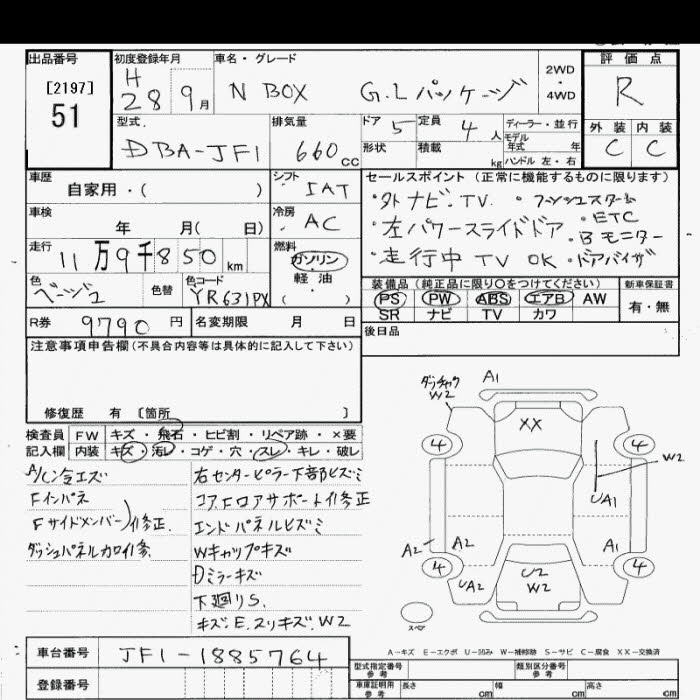 出品番号
[2197]
51
初度登録年月
H
28 9月
車名・グレード
N BOX G.Lパッケージ
2WD
・
4WD
評価点
R
型式.
DBA-JF1
排気量
660cc
ドア 5
定員 4人
形状
積載 kg
ディーラー・並行
モデル
年式 年
ハンドル 左・右
外装 内装
C C
車歴
自家用・( )
シフト
IAT
車検
年 月( 日)
冷房
AC
走行
11万9千850km
燃料
ガソリン
・
軽油
・
( )
色
ベージュ
色替
色コード
YR631PX
R券 9790円
名変期限 月 日
セールスポイント(正常に機能するものに限ります)
・外ナビ.TV. ・プッシュスタート
・左パワースライドドア ・ETC
・Bモニター
・走行中TV OK ・ドアバイザ
装備品(純正品に限り○をつけてください)
PS PW ABS エアB AW
SR ナビ TV カワ
新車保証書
有・無
後日品
注意事項申告欄(不具合内容等は具体的に記入して下さい)
修復歴 有 〔箇所 〕
検査員 FW キズ・飛石・ヒビ割・リペア跡・×要
記入欄 内装 キズ・汚レ・コゲ・穴・スレ・キレ・破レ
A/C冷エズ
Fインパネ
Fサイドメンバー)修正.
ダッシュパネルカロ修.
右センターピラー下部ヒズミ
コアFロアサポート修正
エンドパネルヒズミ
Wキャップキズ
Dミラーキズ
下廻りS.
キズ.E.スリキズ.W2
ダッチャク
W2
A1
XX
4
4
W2
UA1
A2
A2
A1
4
4
UA2
U2
W2
スペア
A-キズ E-エクボ U-凹み W-補修跡 S-サビ C-腐食 XX-交換済
車台番号 JF1-1885764
登録番号
型式指定番号
参考
類別区分番号
参考
車庫証明用
参考
長さ cm
幅 cm
高さ cm